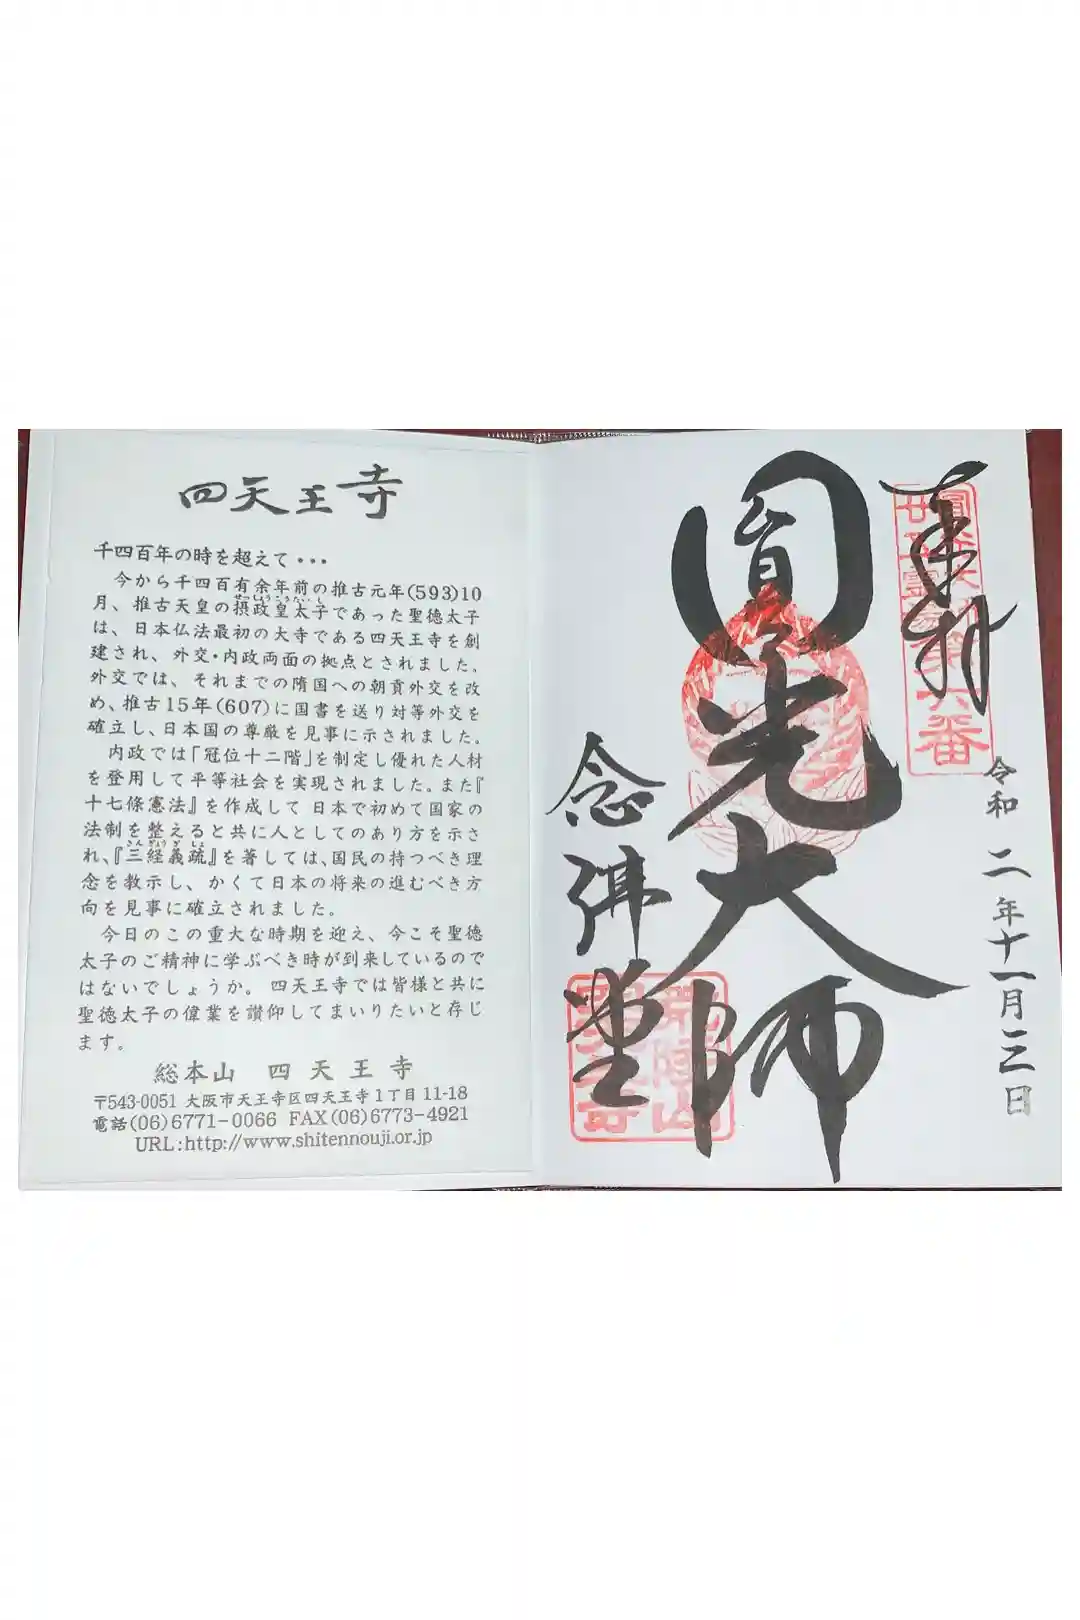 四天王寺
千四百年の時を超えて・・・
今から千四百有余年前の推古元年(593)10
月、推古天皇の摂政皇太子であった聖徳太子
せっしょうこうたいし
は、日本仏法最初の大寺である四天王寺を創
建され、外交・内政両面の拠点とされました。
外交では、それまでの隋国への朝貢外交を改
め、推古15年(607)に国書を送り対等外交を
確立し、日本国の尊厳を見事に示されました。
内政では「冠位十二階」を制定し優れた人材
を登用して平等社会を実現されました。また『
十七條憲法』を作成して日本で初めて国家の
法制を整えると共に人としてのあり方を示さ
さんぎょうぎしょ
れ、『三経義疏』を著しては、国民の持つべき理
念を教示し、かくて日本の将来の進むべき方
向を見事に確立されました。
今日のこの重大な時期を迎え、今こそ聖徳
太子のご精神に学ぶべき時が到来しているので
はないでしょうか。四天王寺では皆様と共に
聖徳太子の偉業を讃仰してまいりたいと存じ
ます。
総本山 四天王寺
〒543-0051 大阪市天王寺区四天王寺1丁目11-18
電話(06)6771-0066 FAX(06)6773-4921
URL:http://www.shitennouji.or.jp
奉拝
令和二年十一月三日
圓光大師
念佛堂
荒陵山
四天王寺